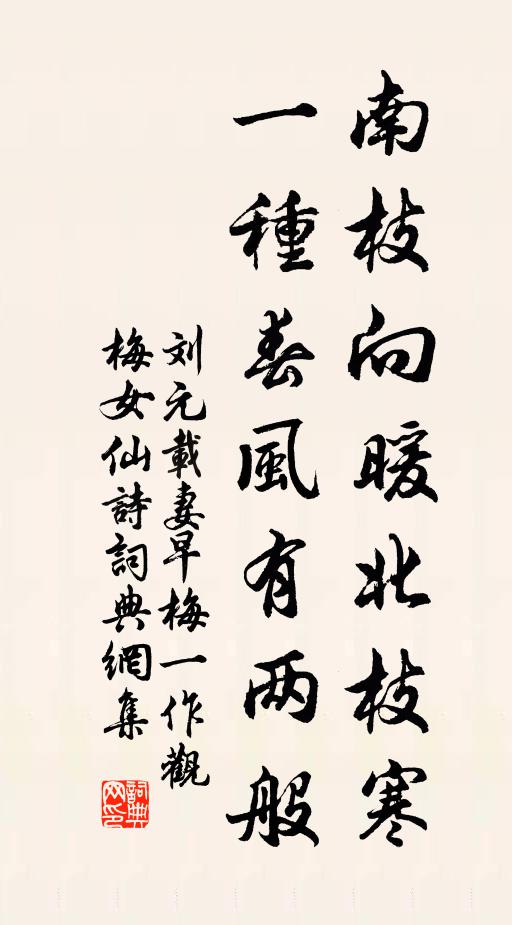 南枝向暖北枝寒
一種春風有两般
刘元載妻早梅一作觀
梅女仙詩詞典網集
詞典
网印